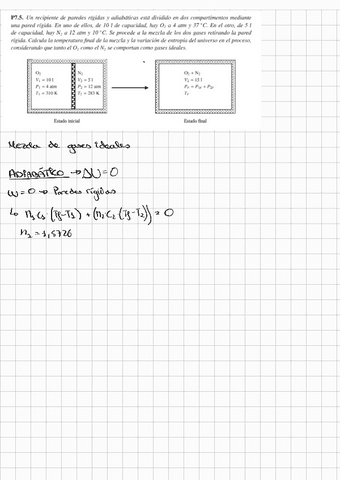 P7.5. Un recipiente de paredes rígidas y adiabáticas está dividido en dos compartimentos mediante
una pared rígida. En uno de ellos, de 10 l de capacidad, hay O₂ a 4 atm y 37 °C. En el otro, de 5 l
de capacidad, hay N₂ a 12 atm y 10 °C. Se procede a la mezcla de los dos gases retirando la pared
rígida. Calcula la temperatura final de la mezcla y la variación de entropía del universo en el proceso,
considerando que tanto el O₂ como el N₂ se comportan como gases ideales.
O₂
V₁ = 10 l
P₁ = 4 atm
T₁ = 310 K
N₂
V₂ = 5 l
P₂ = 12 atm
T₂ = 283 K
Estado inicial
O₂ + N₂
V_F = 15 l
P_F = P₁F + P₂F
T_F
Estado final
Mezcla de gases ideales
ADIABÁTICO → ΔU = 0
W = 0 → Paredes rígidas
↳ n₁ C₁ (Tf - T₁) + (n₂ C₂ (Tf - T₂)) = 0
n₁ = 1,5726